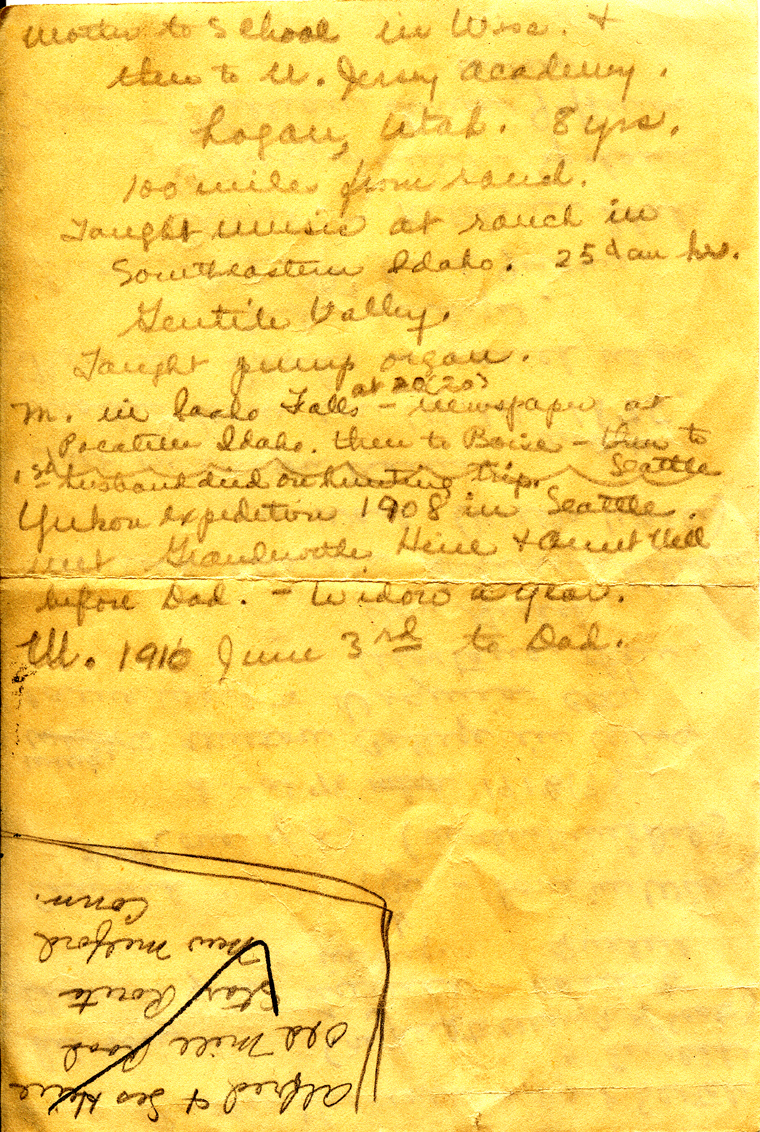 Mother to School in Wisc. &
then to N. Jersey Academy.
Logan, Utah. 8 yrs.
100 miles from ranch.
Taught music at ranch in
Southeastern Idaho. 25¢ an hr.
Gentile Valley.
Taught pump organ.
at 20 (20)
M. in Idaho Falls - newspaper at
Pocatello Idaho. then to Boise - then to
Seattle
1st husband died on hunting trip.
Yukon expedition 1908 in Seattle.
met Grandmother Heine & Aunt Nell
before Dad. - Widow a year.
M. 1910 June 3rd to Dad.
Alfred & Heine
Old Mill Road
Star Route
New Milford
Conn.